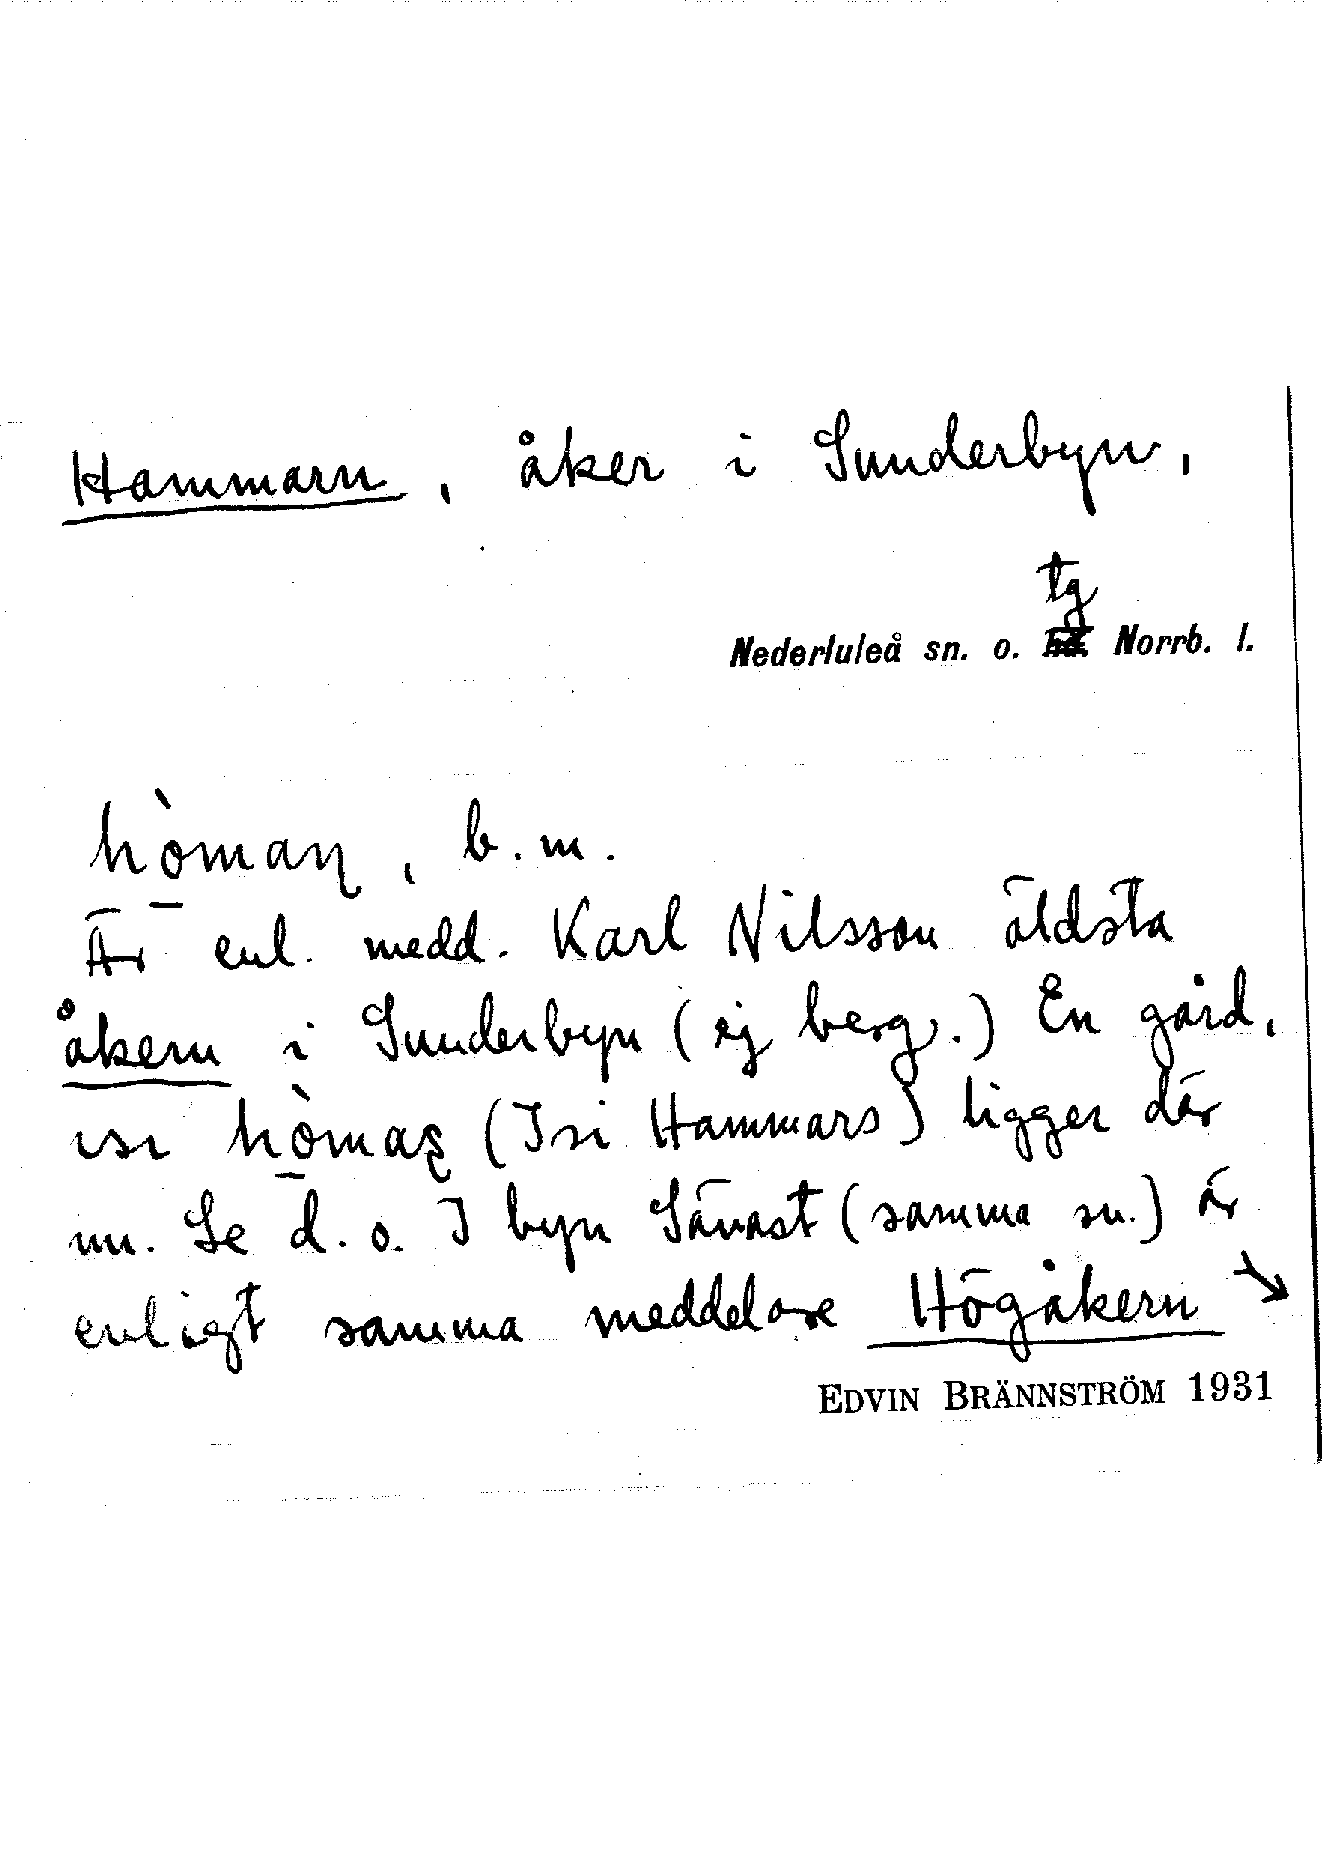 Hammarn, åker i Sunderbyn,
tg
Nederluleå sn. o. hd. Norrb. l.
hòmaṇ, b. m.
Är enl. medd. Karl Nilsson äldsta
åkern i Sunderbyn (ej berg.) En gård,
ısı hòmaʂ (Isi Hammars) ligger där
nu. Se d. o. I byn Sävast (samma sn.) är
enligt samma meddelare Högåkern ↘
EDVIN BRÄNNSTRÖM 1931